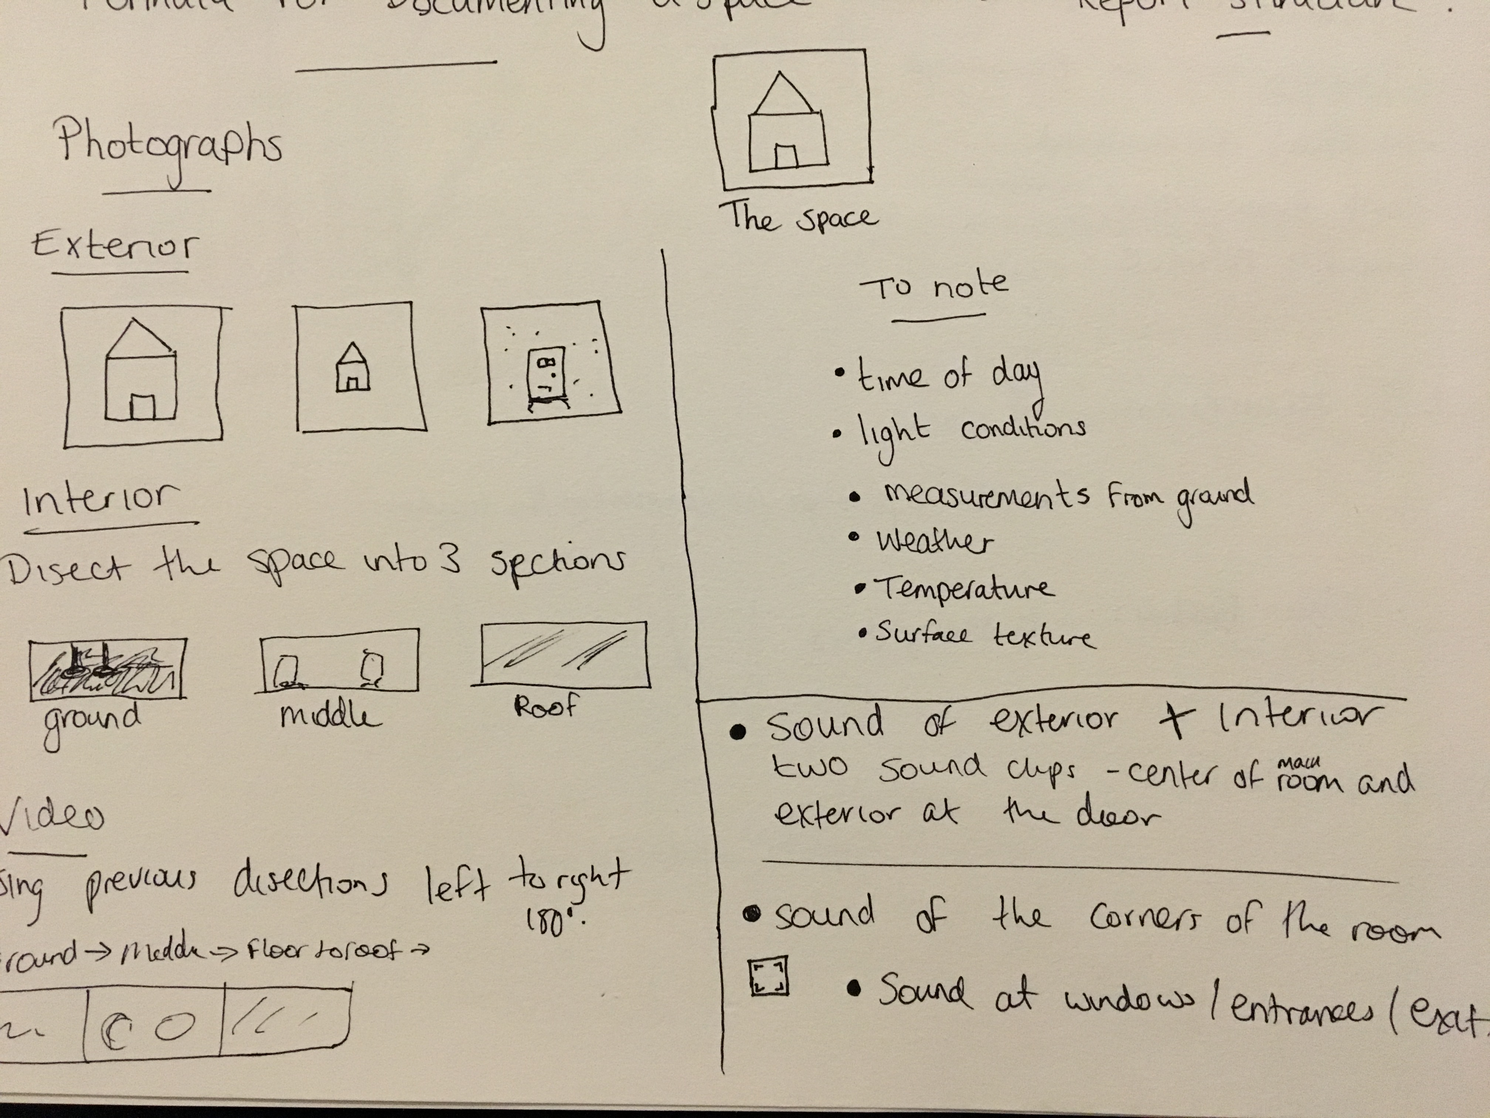 Formula for Documenting a space
Report structure.
Photographs
The space
Exterior
To note
• time of day
• light conditions
• measurements from ground
• weather
• Temperature
• Surface texture
Interior
Disect the space into 3 sections
ground
middle
Roof
• Sound of exterior + Interior
two sound clips - center of main room and
exterior at the door
Video
previous disections left to right
180°.
round → Middle → Floor to roof →
• sound of the corners of the room
• Sound at windows / entrances / exit